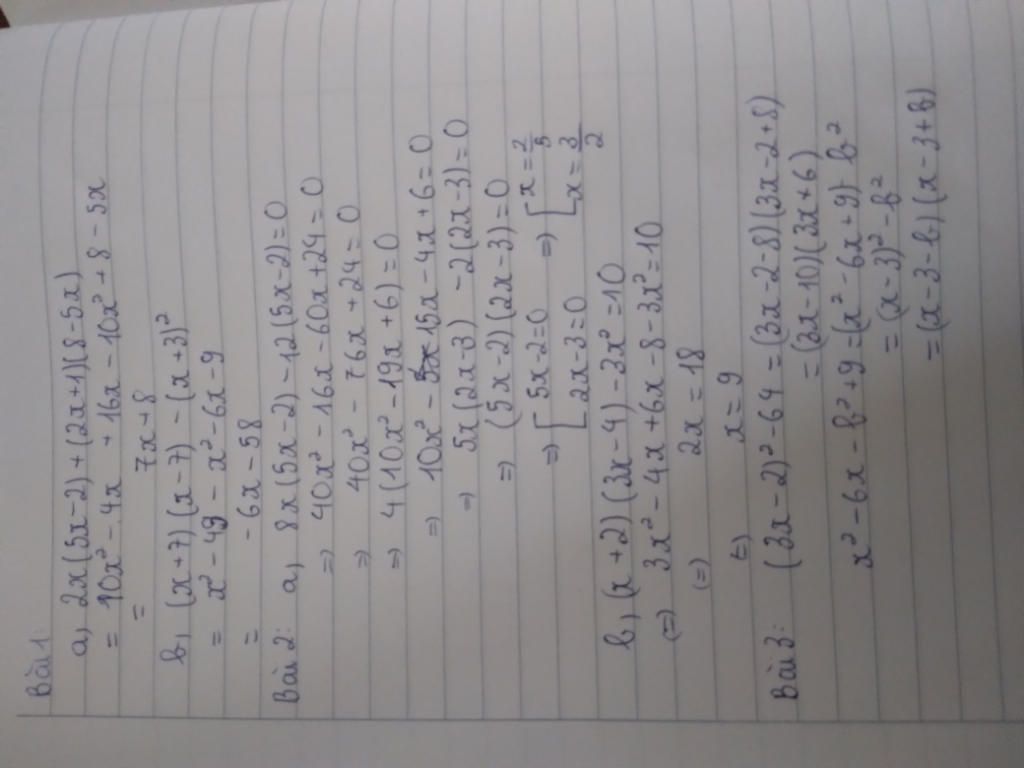 Bài 1:
a, 2x(5x-2) + (2x+1)(8-5x)
= 10x² - 4x + 16x - 10x² + 8 - 5x
= 7x + 8
b, (x+7)(x-7) - (x+3)²
= x² - 49 - x² - 6x - 9
= -6x - 58
Bài 2: a, 8x(5x-2) - 12(5x-2) = 0
=> 40x² - 16x - 60x + 24 = 0
=> 40x² - 76x + 24 = 0
=> 4(10x² - 19x + 6) = 0
=> 10x² - 15x - 4x + 6 = 0
=> 5x(2x-3) - 2(2x-3) = 0
=> (5x-2)(2x-3) = 0
=> [ 5x-2=0 => [ x = 2/5
2x-3=0 x = 3/2
b, (x+2)(3x-4) - 3x² = 10
(=) 3x² - 4x + 6x - 8 - 3x² = 10
(=) 2x = 18
(=) x = 9
Bài 3: (3x-2)² - 64 = (3x-2-8)(3x-2+8)
= (3x-10)(3x+6)
x² - 6x - b² + 9 = (x² - 6x + 9) b²
= (x-3)² - b²
= (x-3-b)(x-3+b)